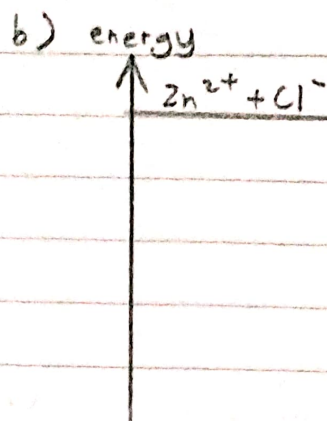 b) energy
Zn²⁺ + Cl⁻